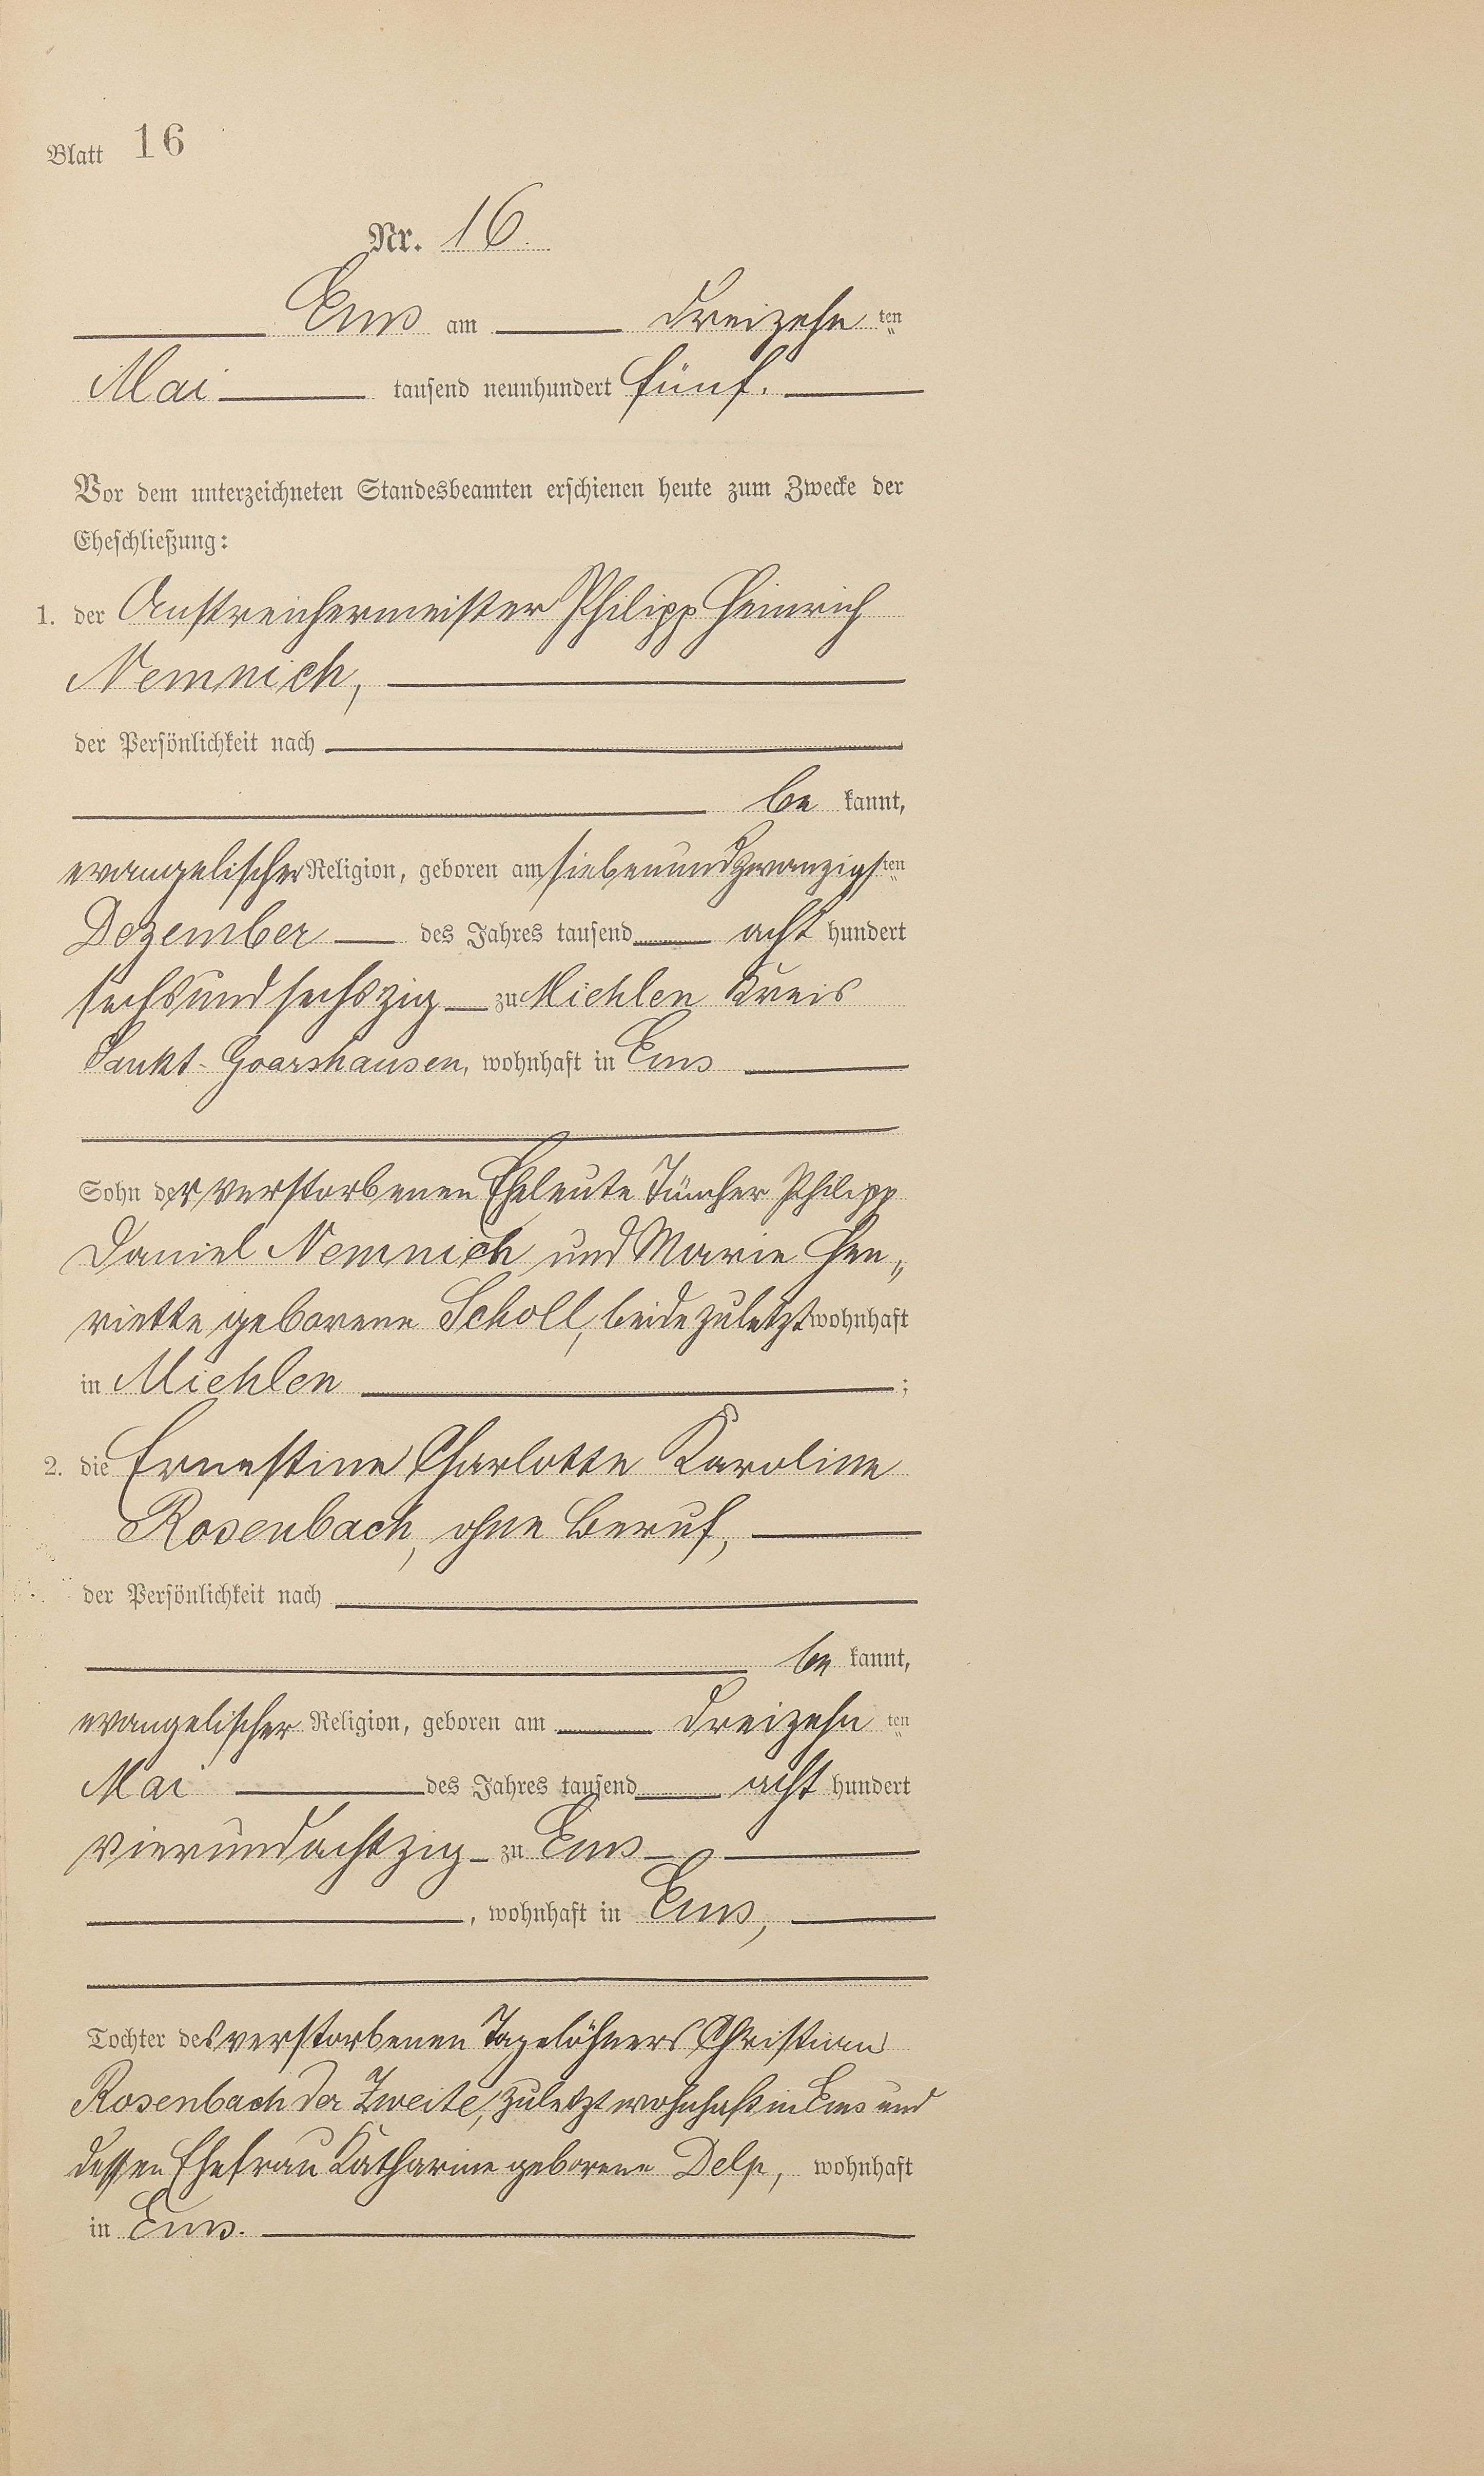 Blatt 16
Nr. 16.
Ems am dreizehn ten
Mai tausend neunhundert fünf.
Vor dem unterzeichneten Standesbeamten erschienen heute zum Zwecke der
Eheschließung:
1. der Anstreichermeister Philipp Heinrich
Nemnich,
der Persönlichkeit nach
be kannt,
evangelischer Religion, geboren am siebenundzwanzigsten
Dezember des Jahres tausend acht hundert
sechsundsechszig zu Miehlen Kreis
Sankt-Goarshausen, wohnhaft in Ems
Sohn der verstorbenen Eheleute Tüncher Philipp
Daniel Nemnich und Marie Hen„
riette geborene Scholl, beide zuletzt wohnhaft
in Miehlen ;
2. die Ernestine Charlotte Karoline
Rosenbach, ohne Beruf,
der Persönlichkeit nach
be kannt,
evangelischer Religion, geboren am dreizehn ten
Mai des Jahres tausend acht hundert
vierundachtzig zu Ems
, wohnhaft in Ems,
Tochter des verstorbenen Tagelöhners Christian
Rosenbach der Zweite, zuletzt wohnhaft in Ems und
dessen Ehefrau Katharine geborene Delp, wohnhaft
in Ems.